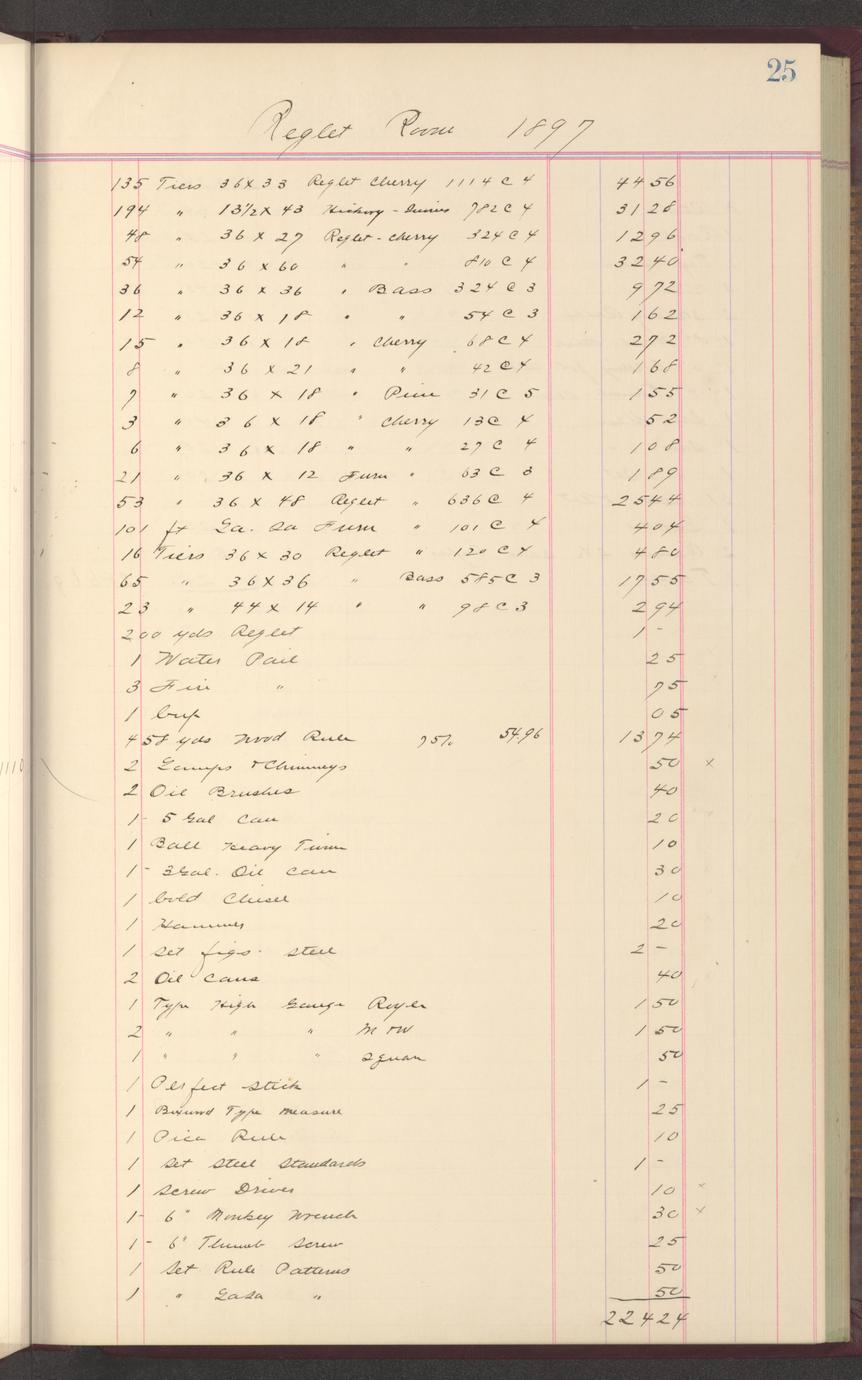 25
Reglet Room 1897
135 Tiers 36 x 33 Reglet Cherry 1114 @ 4 44 56
194 " 13 1/2 x 43 Hickory - 782 @ 4 31 28
48 " 36 x 27 Reglet - Cherry 324 @ 4 12 96
54 " 36 x 60 " " 810 @ 4 32 40
36 " 36 x 36 " Bass 324 @ 3 9 72
12 " 36 x 18 " " 54 @ 3 1 62
15 " 36 x 18 " Cherry 68 @ 4 2 72
8 " 36 x 21 " " 42 @ 4 1 68
7 " 36 x 18 " Pine 31 @ 5 1 55
3 " 36 x 18 " Cherry 13 @ 4 52
6 " 36 x 18 " " 27 @ 4 1 08
21 " 36 x 12 Furn " 63 @ 3 1 89
53 " 36 x 48 Reglet " 636 @ 4 25 44
101 ft La. Sa Furn " 101 @ 4 4 04
16 Tiers 36 x 30 Reglet " 120 @ 4 4 80
65 " 36 x 36 " Bass 585 @ 3 17 55
23 " 44 x 14 " " 98 @ 3 2 94
200 yds Reglet 1 -
1 Water Pail 25
3 Fire " 75
1 Cup 05
458 yds Wood Rule 75% 54.96 13 74
2 Lamps & Chimneys 50 x
2 Oil Brushes 40
1 - 5 Gal Can 20
1 Ball Heavy Twine 10
1 - 3 Gal. Oil Can 30
1 Cold Chisel 10
1 Hammer 20
1 Set figs. Steel 2 -
2 Oil Cans 40
1 Type High Gauge Royle 1 50
2 " " " M & W 1 50
1 " " " Square 50
1 Perfect Stick 1 -
1 Boxwood Type Measure 25
1 Pica Rule 10
1 Set Steel Standards 1 -
1 Screw Driver 10 x
1 - 6" Monkey Wrench 30 x
1 - 6" Thumb Screw 25
1 Set Rule Patterns 50
1 " " 50
224 24